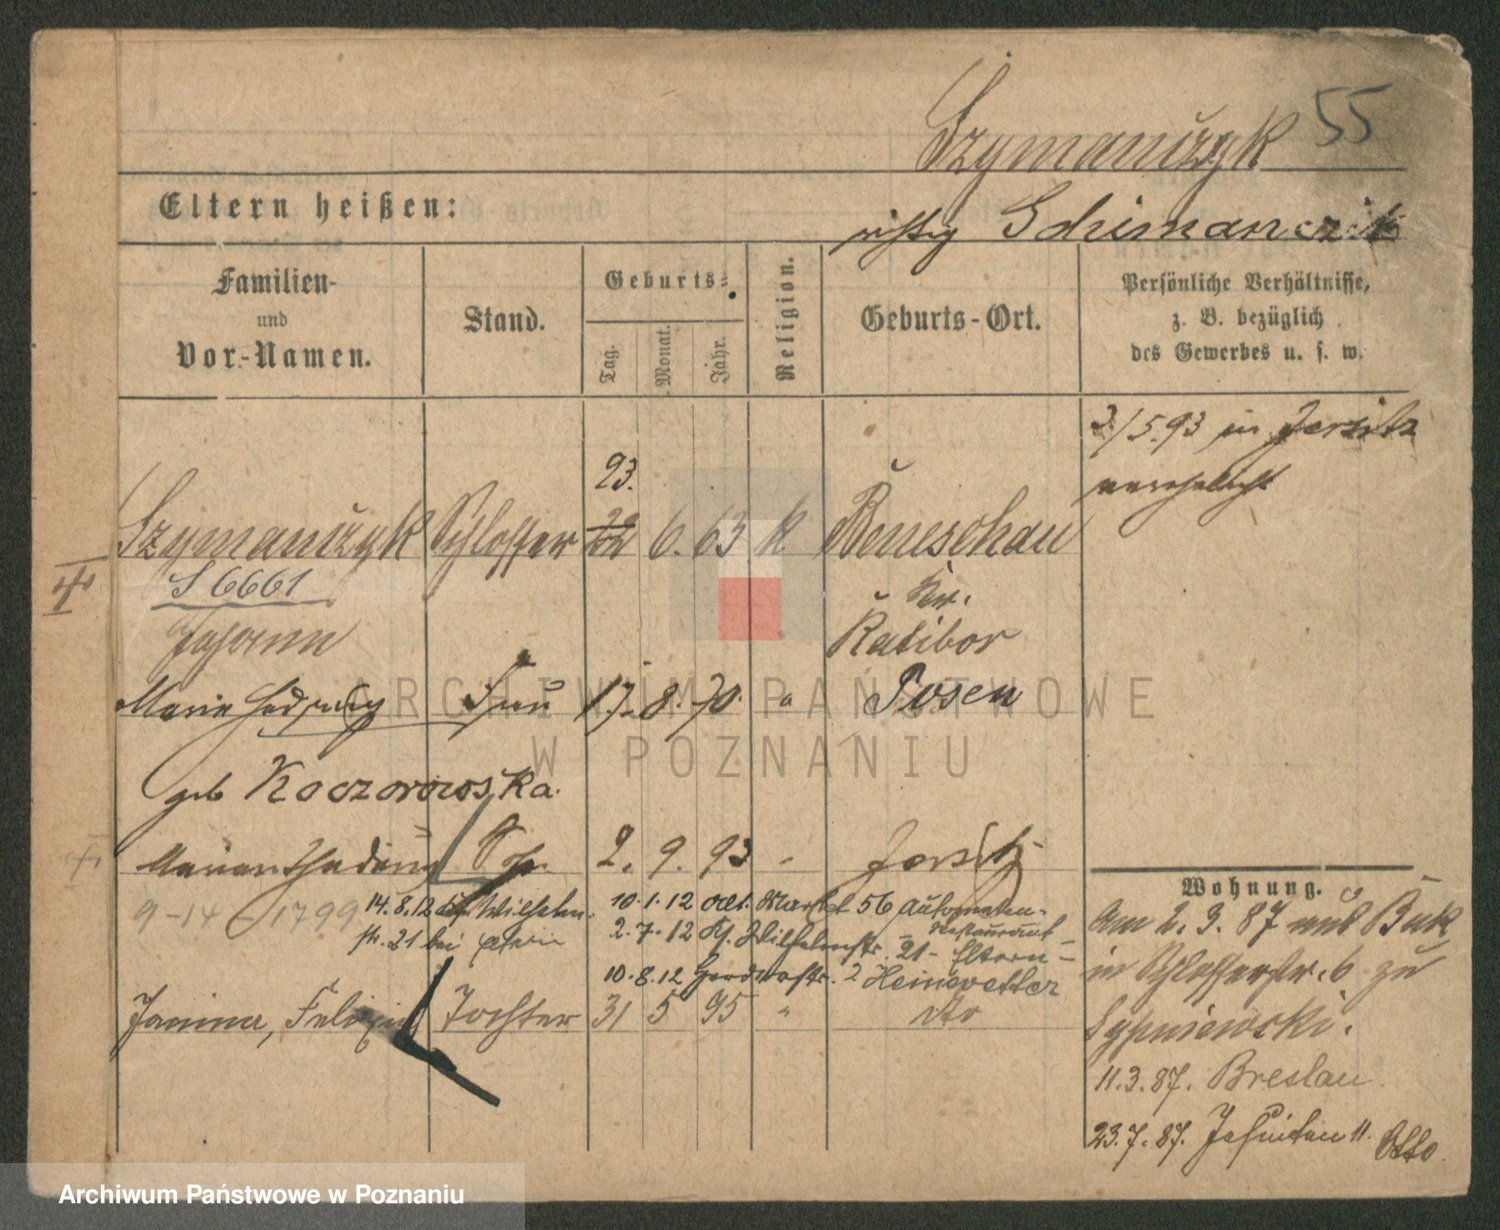 Szymańczyk 55
Eltern heißen:
richtig Schimanczik
Familien-
und
Vor-Namen.
Stand.
Geburts-
Tag.
Monat.
Jahr.
Religion.
Geburts-Ort.
Persönliche Verhältnisse,
z. B. bezüglich
des Gewerbes u. s. w.
3/5.93 in Jersitz
verehelicht
23.
Szymańczyk Schlosser 22 6. 63 k Beneschau
S 6661 Kr.
Johann Ratibor
Marie Hedwig Frau 17. 8. 70. " Posen
geb Koczorowska.
Sohn 2. 9. 93 " Jersitz
9-14-1799 14.8.12 Wilhelm-
str. 21 bei
10.1.12 Markt 56 Automaten-
Restaurant
2.7.12 Wilhelmstr. 21 - Eltern -
10.8.12 2 Heinevetter
Janina, Felixia Tochter 31 5 95 " dto
Wohnung.
Am 2.3.87 aus Buk
in Schlosserstr. 6 zu
Sypniewski.
11.3.87. Breslau
23.7.87. Jesuiten 11. Otto
ARCHIWUM PAŃSTWOWE
W POZNANIU
Archiwum Państwowe w Poznaniu